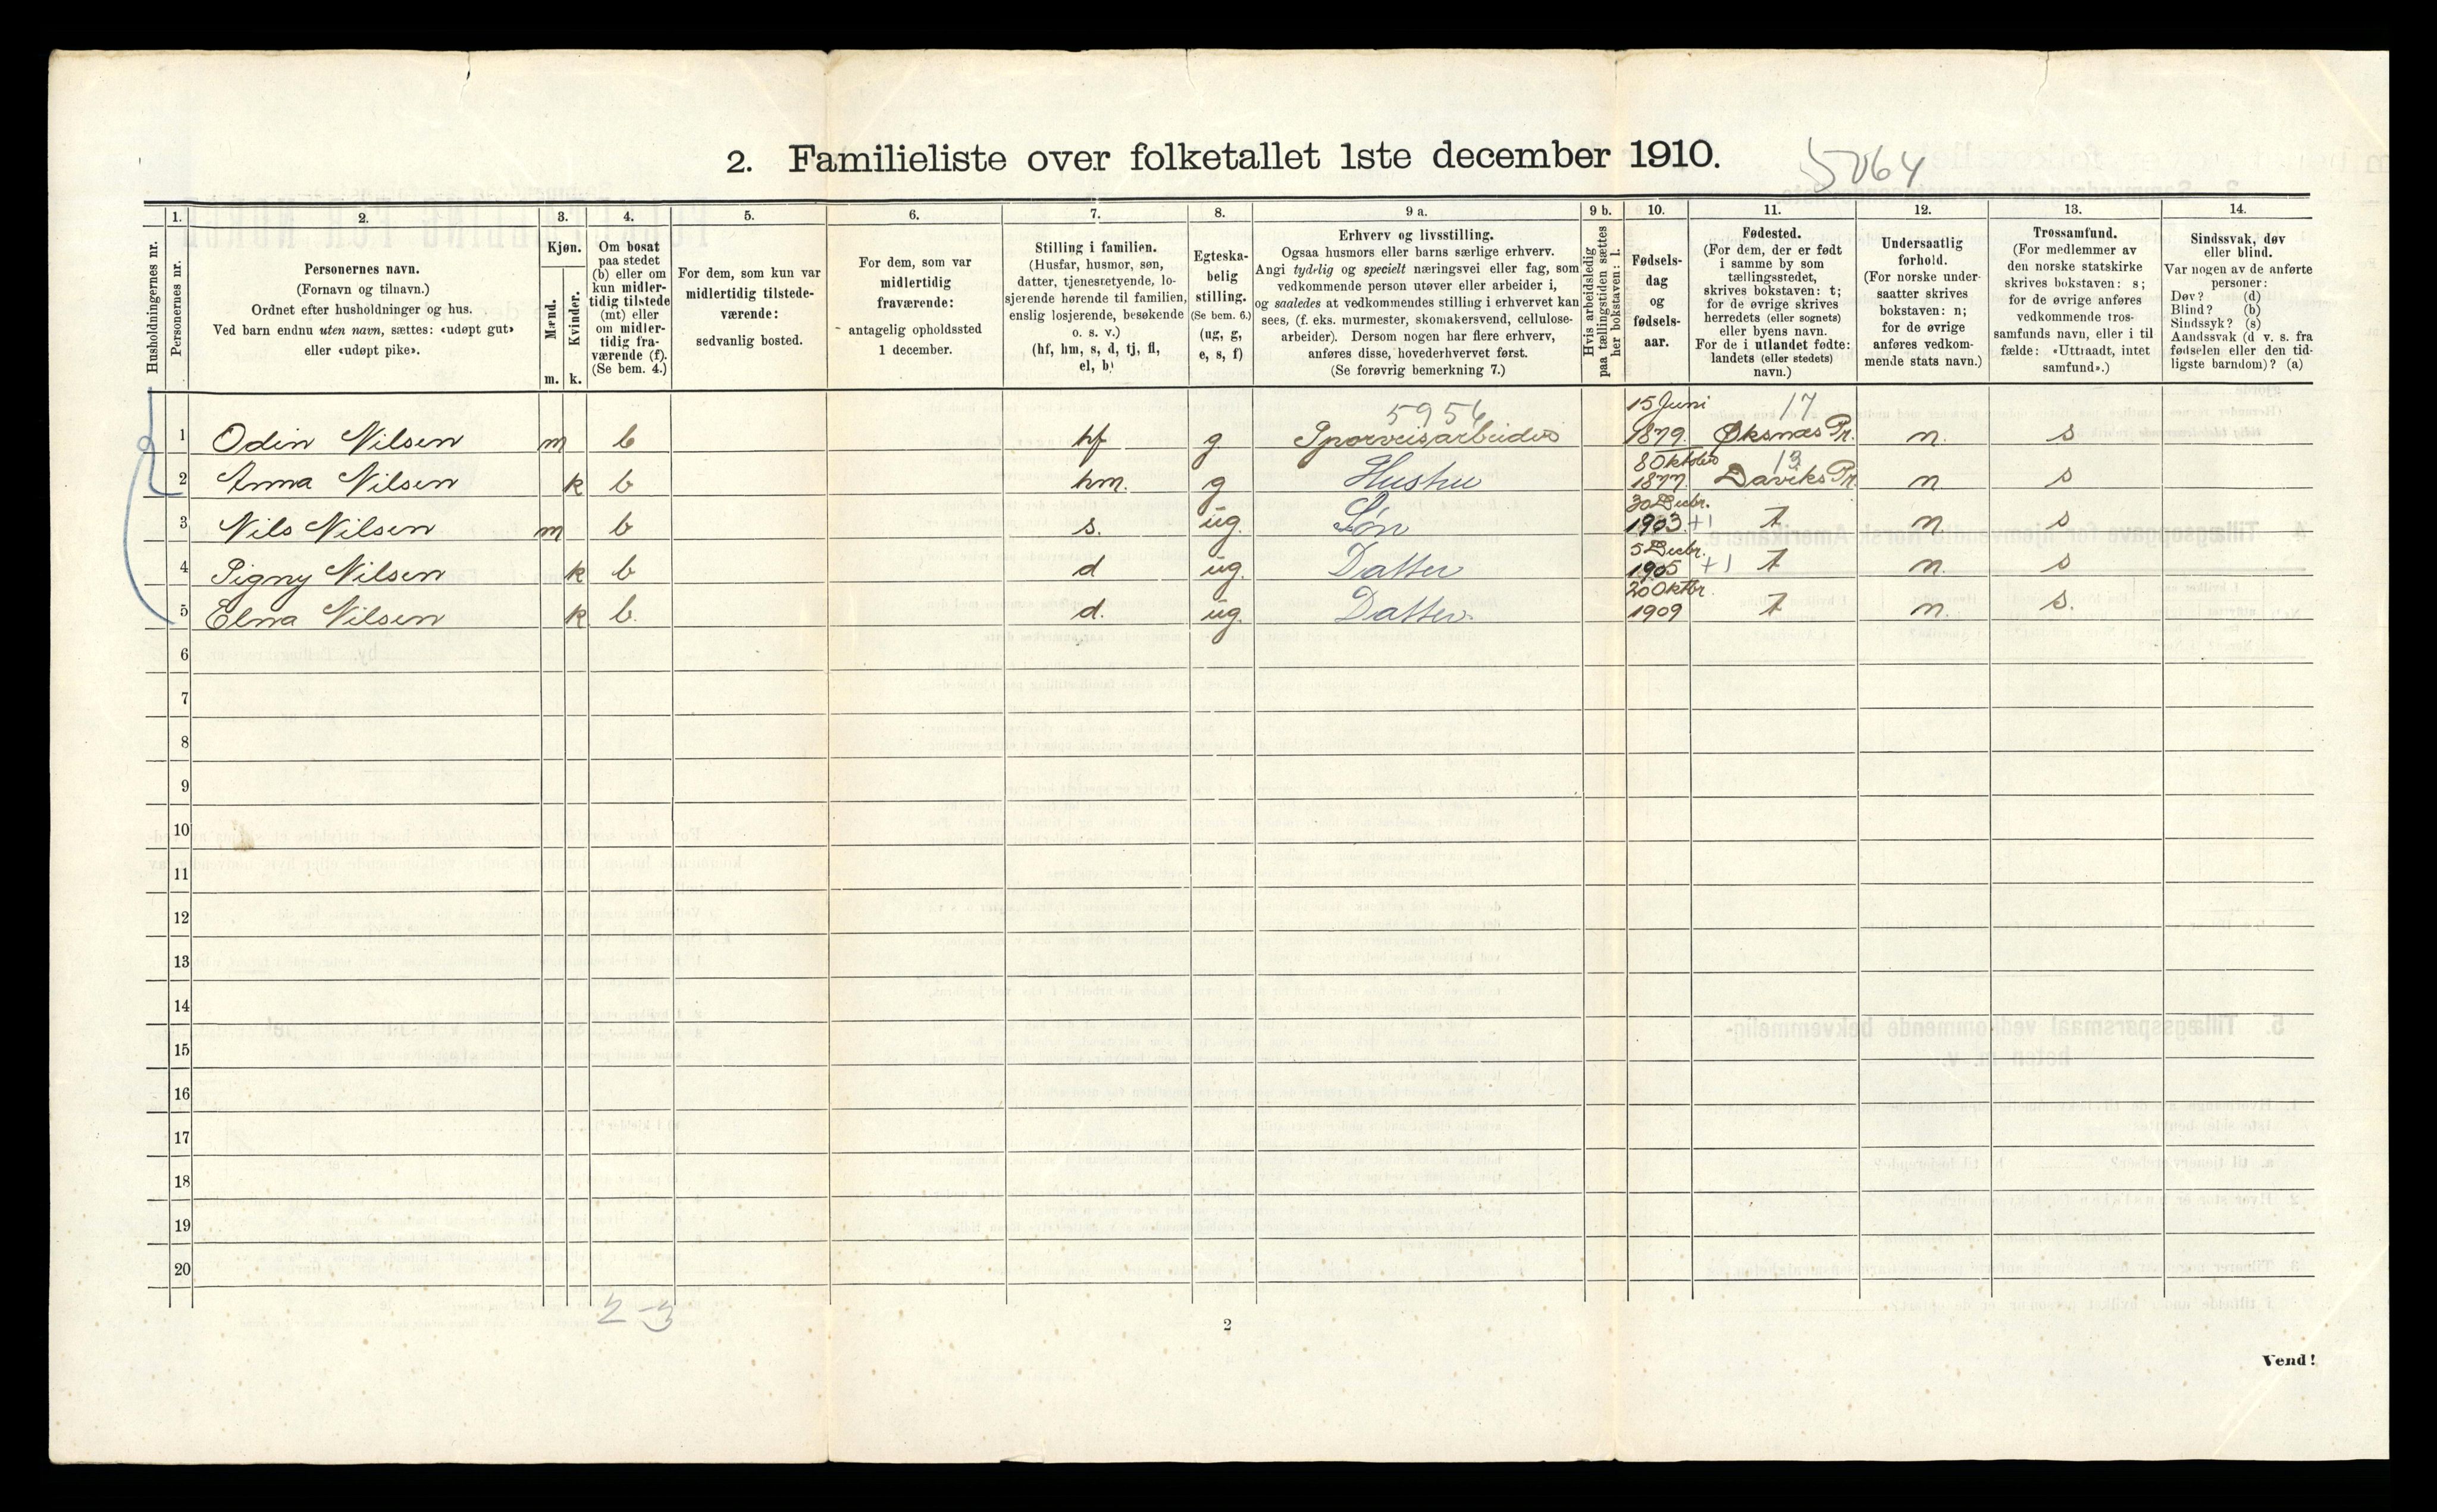 2. Familieliste over folketallet 1ste december 1910.
5064
Husholdningernes nr.
1.
Personernes nr.
2.
Personernes navn.
(Fornavn og tilnavn.)
Ordnet efter husholdninger og hus.
Ved barn endnu uten navn, sættes: «udøpt gut»
eller «udøpt pike».
3.
Kjøn.
Mænd.
Kvinder.
m. k.
4.
Om bosat
paa stedet
(b) eller om
kun midler-
tidig tilstede
(mt) eller
om midler-
tidig fra-
værende (f).
(Se bem. 4.)
5.
For dem, som kun var
midlertidig tilstede-
værende:
sedvanlig bosted.
6.
For dem, som var
midlertidig
fraværende:
antagelig opholdssted
1 december.
7.
Stilling i familien.
(Husfar, husmor, søn,
datter, tjenestetyende, lo-
sjerende hørende til familien,
enslig losjerende, besøkende
o. s. v.)
(hf, hm, s, d, tj, fl,
el, b)
8.
Egteska-
belig
stilling.
(Se bem. 6.)
(ug, g,
e, s, f)
9 a.
Erhverv og livsstilling.
Ogsaa husmors eller barns særlige erhverv.
Angi tydelig og specielt næringsvei eller fag, som
vedkommende person utøver eller arbeider i,
og saaledes at vedkommendes stilling i erhvervet kan
sees, (f. eks. murmester, skomakersvend, cellulose-
arbeider). Dersom nogen har flere erhverv,
anføres disse, hovederhvervet først.
(Se forøvrig bemerkning 7.)
9 b.
Hvis arbeidsledig
paa tællingstiden sættes
her bokstaven: l.
10.
Fødsels-
dag
og
fødsels-
aar.
11.
Fødested.
(For dem, der er født
i samme by som
tællingsstedet,
skrives bokstaven: t;
for de øvrige skrives
herredets (eller sognets)
eller byens navn.
For de i utlandet fødte:
landets (eller stedets)
navn.)
12.
Undersaatlig
forhold.
(For norske under-
saatter skrives
bokstaven: n;
for de øvrige
anføres vedkom-
mende stats navn.)
13.
Trossamfund.
(For medlemmer av
den norske statskirke
skrives bokstaven: s;
for de øvrige anføres
vedkommende tros-
samfunds navn, eller i til
fælde: «Uttraadt, intet
samfund».)
14.
Sindssvak, døv
eller blind.
Var nogen av de anførte
personer:
Døv? (d)
Blind? (b)
Sindssyk? (s)
Aandssvak (d v. s. fra
fødselen eller den tid-
ligste barndom)? (a)
5956 15 Juni 17
1 Odin Nilsen m b hf g. Sporveisarbeider 1879. Øksnæs Pr. n. s
8 Oktober 13
2 Anna Nilsen k b hm. g Hustru 1877. Daviks Pr. n s
30 Decbr.
3 Nils Nilsen m b s. ug. Søn 1903 +1 t n s
5 Decbr.
4 Signy Nilsen k b d ug. Datter 1905 +1 t n. s
20 Oktbr.
5 Elna Nilsen k b. d. ug. Datter. 1909 t n. s.
6
7
8
9
10
11
12
13
14
15
16
17
18
19
20
2-3
2
Vend!